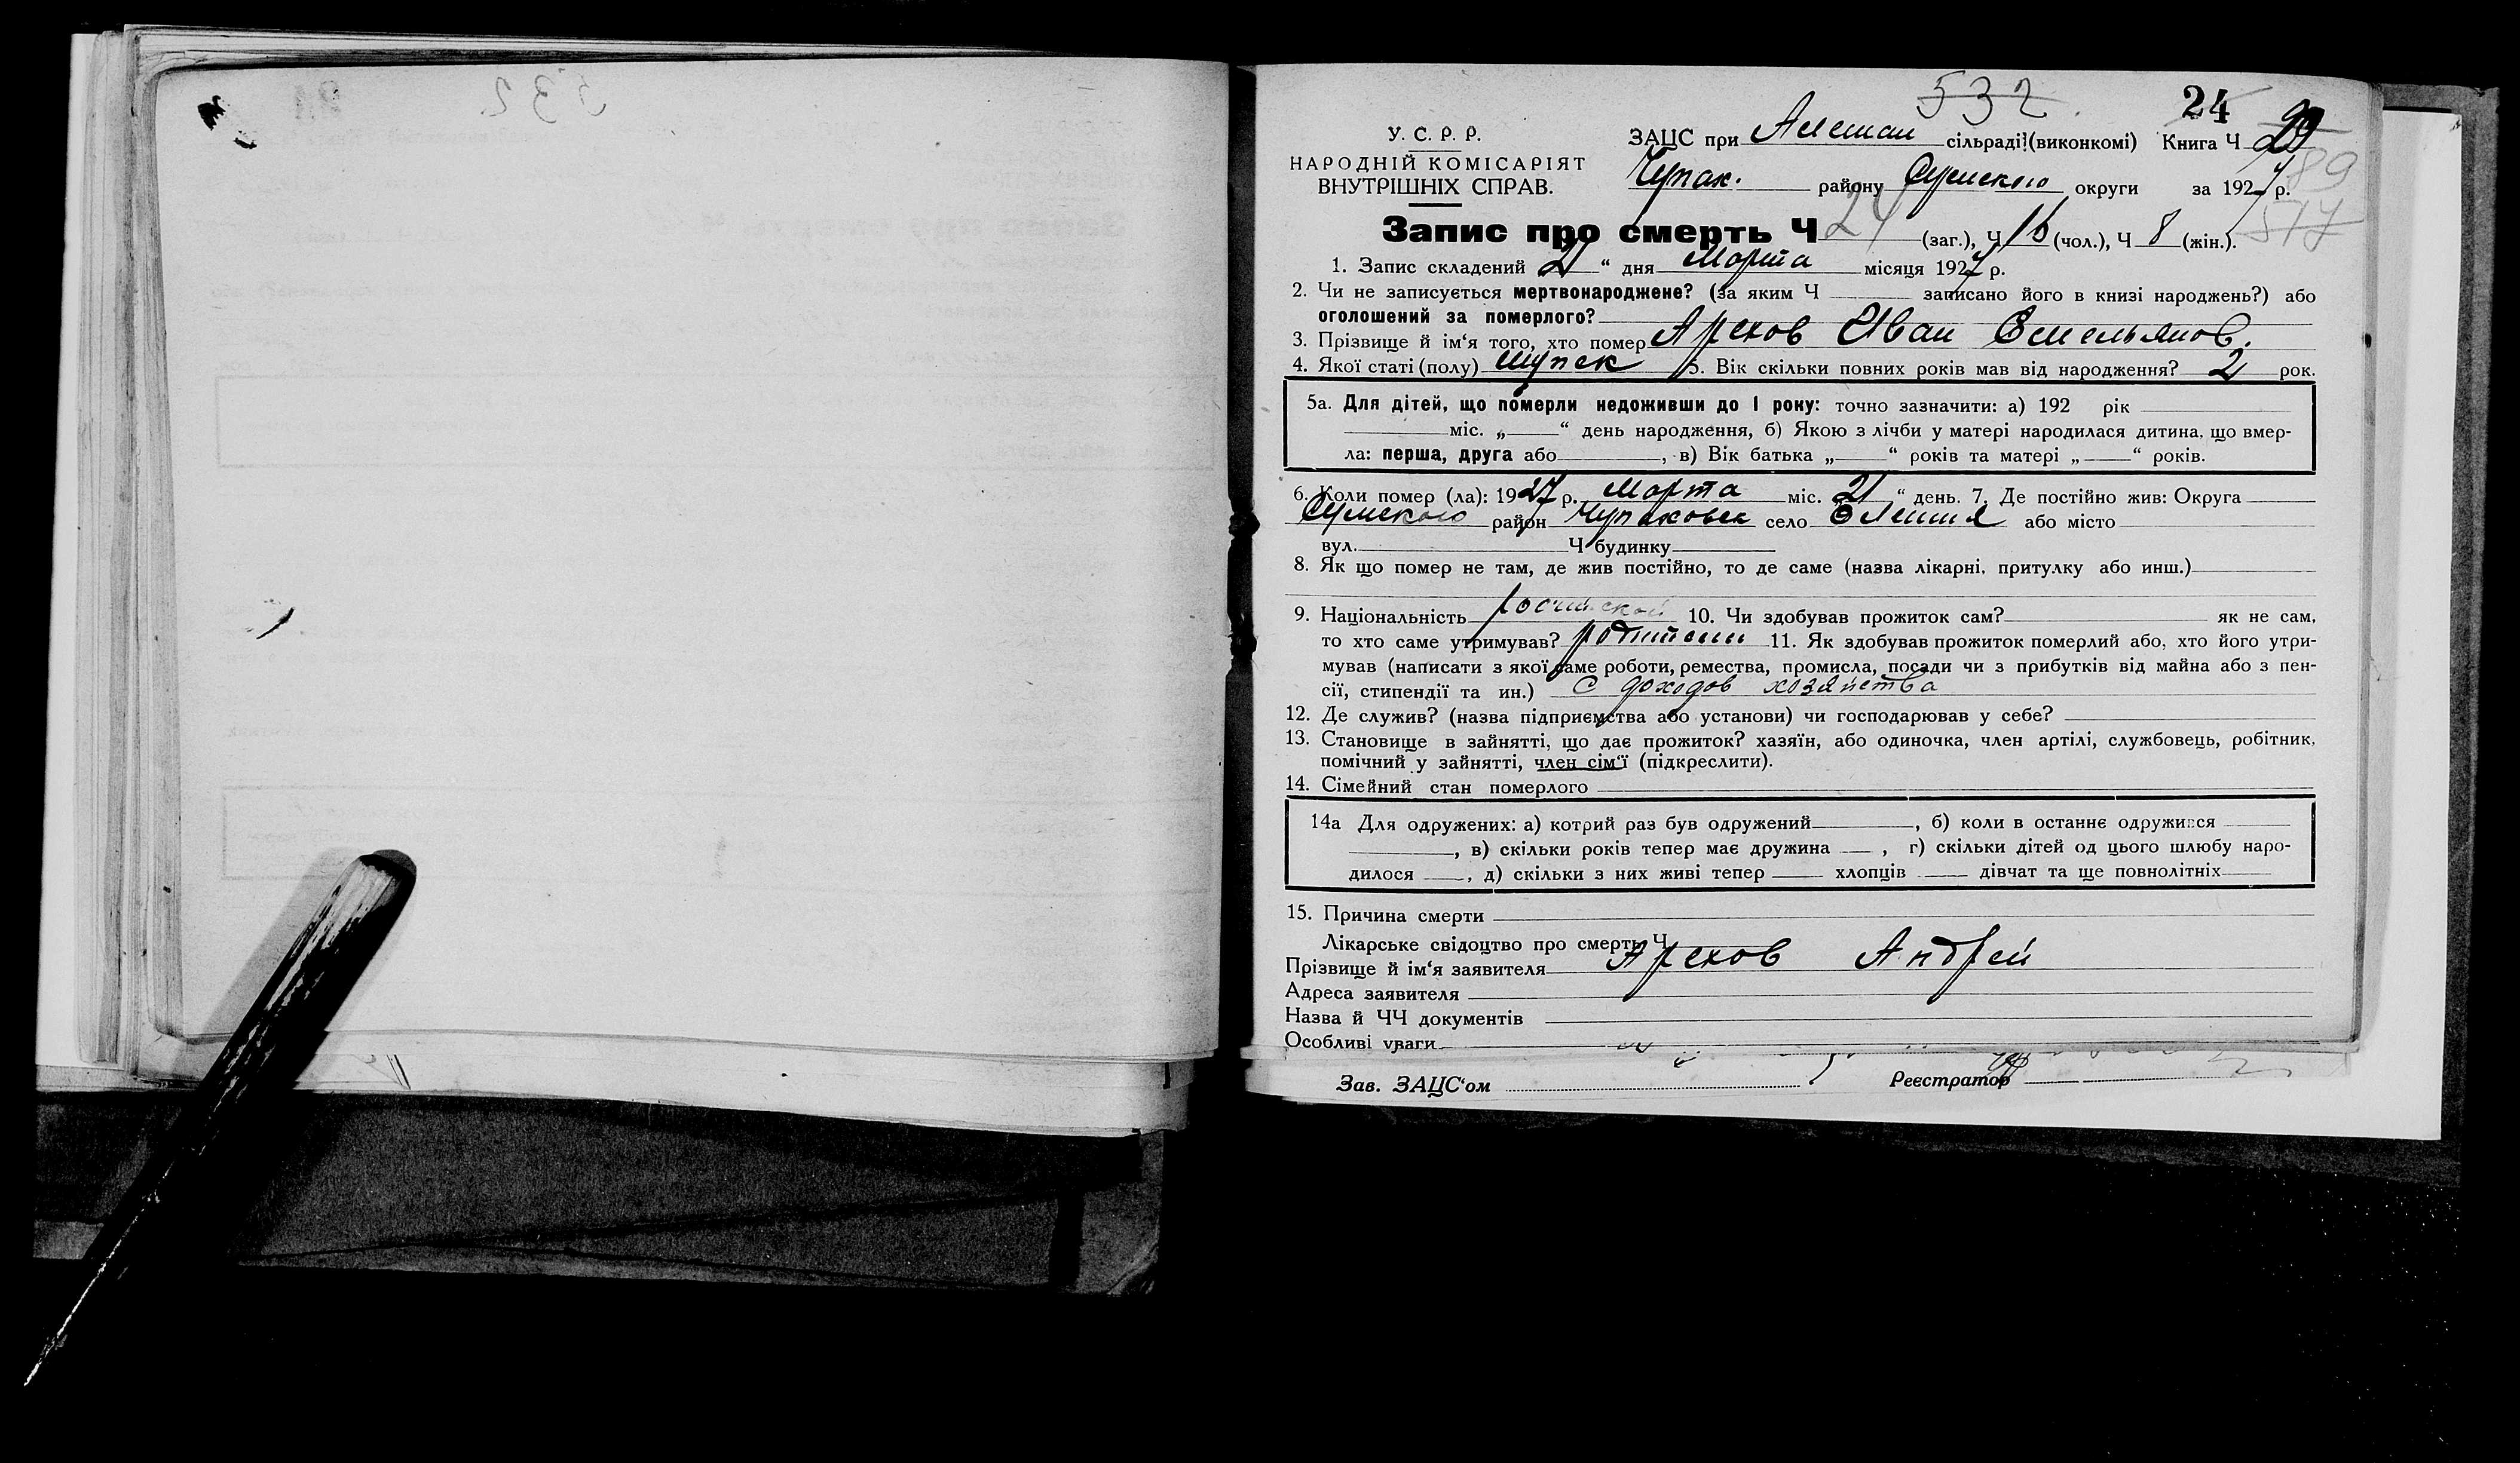 532
24
У. С. Р. Р.
НАРОДНІЙ КОМІСАРІЯТ
ВНУТРІШНІХ СПРАВ.
ЗАЦС при Алешан сільраді (виконкомі) Книга Ч
Чупах. району Сумского округи за 1927 р.
89
517
Запис про смерть Ч 24 (заг.), Ч 16 (чол.), Ч 8 (жін.).
1. Запис складений 21 “ дня Марта місяця 1927 р.
2. Чи не записується мертвонароджене? (за яким Ч записано його в книзі народжень?) або
оголошений за померлого?
3. Прізвище й ім‘я того, хто помер Арехов Иван Емельянов.
4. Якої статі (полу) мужск 5. Вік скільки повних років мав від народження? 2 рок.
5а. Для дітей, що померли недоживши до І року: точно зазначити: а) 192 рік
міс. „ “ день народження, б) Якою з лічби у матері народилася дитина, що вмер-
ла: перша, друга або , в) Вік батька „ “ років та матері „ “ років.
6. Коли помер (ла): 1927 р. Марта міс. 21 “ день. 7. Де постійно жив: Округа
Сумского район Чупаховск село Олешня або місто
вул. Ч будинку
8. Як що помер не там, де жив постійно, то де саме (назва лікарні, притулку або инш.)
9. Національність 10. Чи здобував прожиток сам? як не сам,
то хто саме утримував? родители 11. Як здобував прожиток померлий або, хто його утри-
мував (написати з якої саме роботи, ремества, промисла, посади чи з прибутків від майна або з пен-
сії, стипендії та ин.) С доходов хозяйства
12. Де служив? (назва підприємства або установи) чи господарював у себе?
13. Становище в зайнятті, що дає прожиток? хазяїн, або одиночка, член артілі, службовець, робітник,
помічний у зайнятті, член сім‘ї (підкреслити).
14. Сімейний стан померлого
14а Для одружених: а) котрий раз був одружений , б) коли в останнє одружився
, в) скільки років тепер має дружина , г) скільки дітей од цього шлюбу наро-
дилося , д) скільки з них живі тепер хлопців дівчат та ще повнолітніх
15. Причина смерти
Лікарське свідоцтво про смерть Ч
Прізвище й ім‘я заявителя Арехов Андрей
Адреса заявителя
Назва й ЧЧ документів
Особливі уваги
Зав. ЗАЦС‘ом Реєстратор